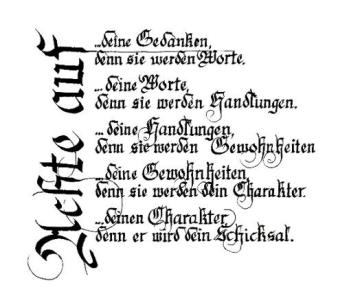 Achte auf
...deine Gedanken,
denn sie werden Worte.
...deine Worte,
denn sie werden Handlungen.
...deine Handlungen,
denn sie werden Gewohnheiten
...deine Gewohnheiten,
denn sie werden dein Charakter.
...deinen Charakter,
denn er wird dein Schicksal.